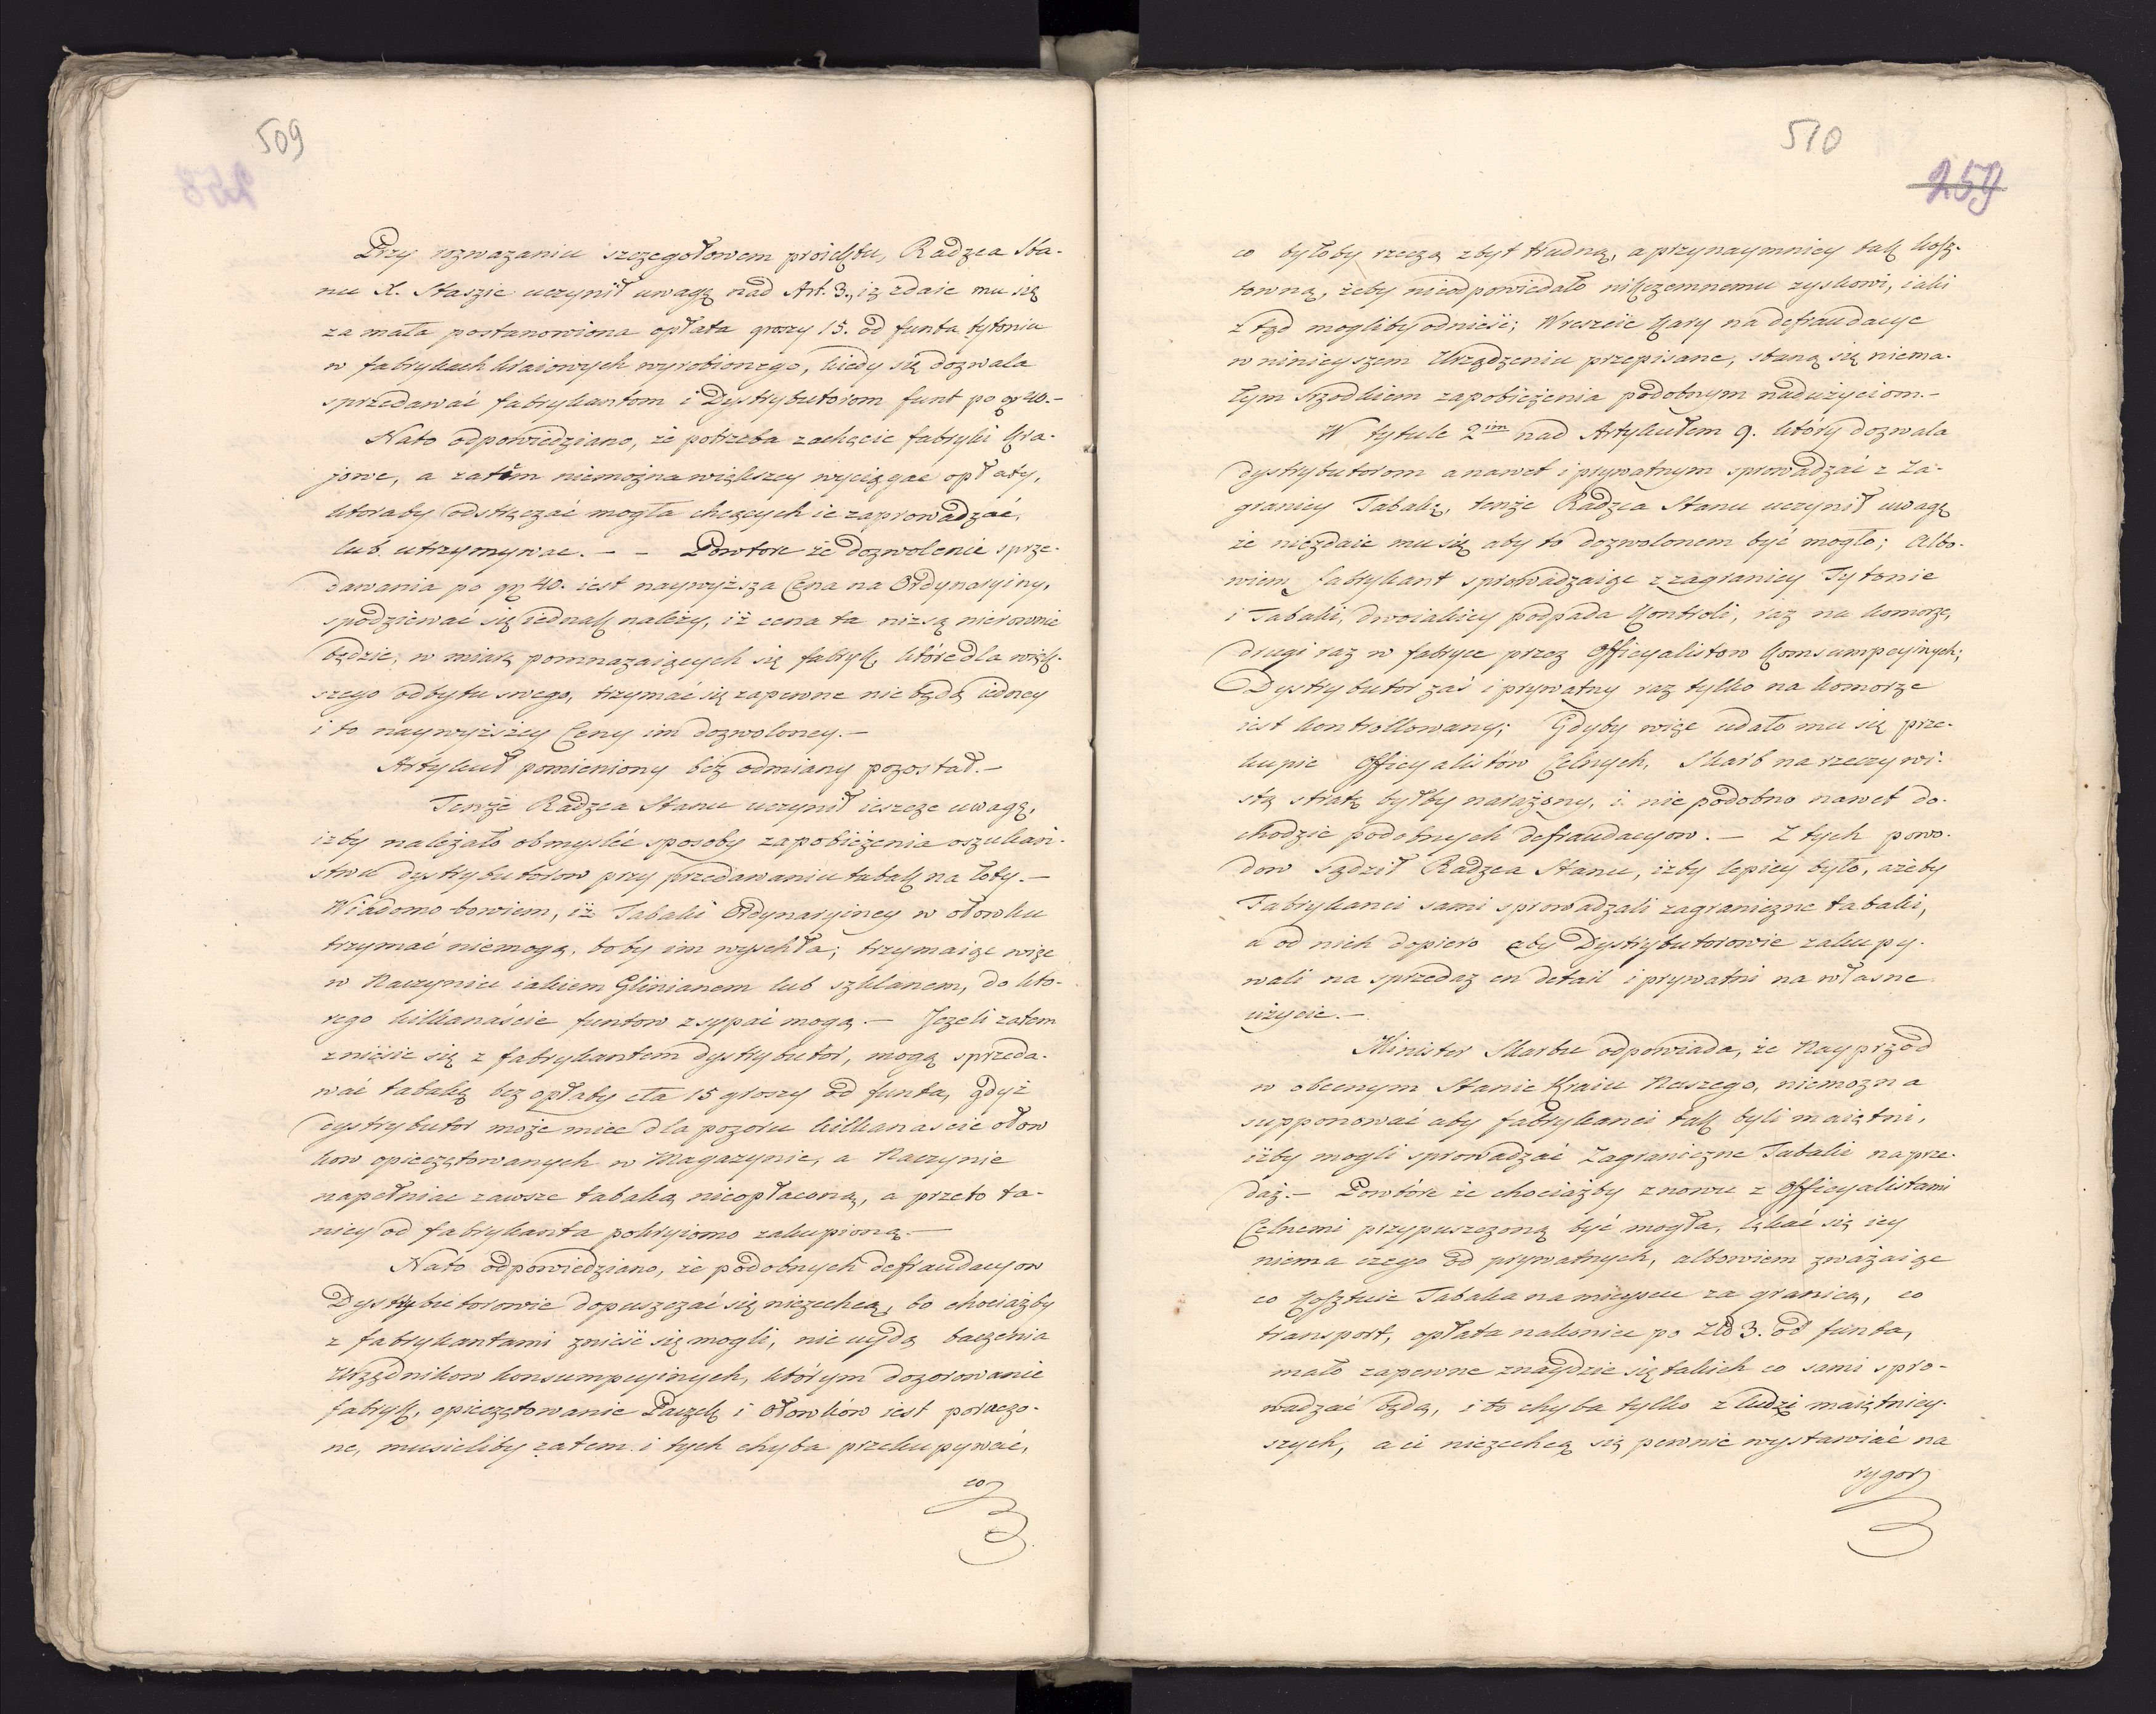 509
Przy rozwazaniu szczegołowem proiektu, Radzca Sta-
nu X. Staszic uczynił uwagę nad Art. 3., iż zdaie mu się
za mała postanowiona opłata groszy 15. od funta tytoniu
w fabrykach kraiowych wyrobionego, kiedy się dozwala
sprzedawać fabrykantom i Dystrybutorom funt po gr 40.-
Nato odpowiedziano, że potrzeba zachęcić fabryki kra-
jowe, a zatém niemożna większey wyciągac opłaty,
ktoraby odstręczać mogła chcących ie zaprowadzać,
lub utrzymywac. - - Powtore że dozwolenie sprze-
dawania po gr 40. iest naywyższa Cena na Ordynaryiny,
spodziewać się iednak należy, iż cena ta niższą nierownie
będzie, w miarę pomnazaiących się fabryk, które dla więk-
szego odbytu swego, trzymać się zapewne nie będą iedney
i to naywyższey Ceny im dozwoloney.-
Artykuł pomieniony bez odmiany pozostał.-
Tenże Radzca Stanu uczynił ieszcze uwagę,
izby należało obmyslić sposoby zapobieżenia oszukań-
stwu dystrybutorow przy przedawaniu tabak na łoty.-
Wiadomo bowiem, iż Tabaki Ordynaryiney w ołowku
trzymać niemogą, boby im wyschła; trzymaiąc więc
w Naczyniu iakiem Glinianem lub szklanem, do kto-
rego kilkanaście funtow zsypać mogą.- Jeżeli zatem
zniesie się z fabrykantem dystrybutor, mogą sprzeda-
wać tabakę bez opłaty cła 15 groszy od funta, gdyż
dystrybutor może miec dla pozoru kilkanascie ołow
kow opieczętowanych w Magazynie, a Naczynie
napełniac zawsze tabaką nieopłaconą, a przeto ta-
niey od fabrykanta pokryiomo zakupioną.-
Nato odpowiedziano, że podobnych defraudacyow
Dystrybutorowie dopuszczać się niezechcą, bo chociażby
z fabrykantami znieść się mogli, nie uydą baczenia
Urzędnikow konsumpcyinych, którym dozorowanie
fabryk, opieczętowanie Paczek i Ołowków iest porączo-
ne, musieliby zatem i tych chyba przekupywać,
co
510
259
co byłoby rzeczą zbyt trudną, a przynaymniey tak kosz-
towną, żeby nieodpowiedało nikczemnemu zyskowi, iaki
z tąd mogliby odnieść; Wreszcie Kary na defraudacye
w ninieyszem Urządzeniu przepisane, staną się niema-
łym srzodkiem zapobieżenia podobnym nadużyciom.-
W tytule 2im nad Artykułem 9. który dozwala
dystrybutorom a nawet i prywatnym sprowadzać z Za-
granicy Tabakę, tenże Radzca Stanu uczynił uwagę
że niezdaie mu się aby to dozwolonem być mogło; Albo-
wiem fabrykant sprowadzaiąc z zagranicy Tytonie
i Tabaki, dwoiakiey podpada Kontroli, raz na komorze,
drugi raz w fabryce przez Officyalistow Konsumpcyinych;
Dystrybutor zaś i prywatny raz tylko na komorze
iest kontrollowany; Gdyby więc udało mu się prze-
kupic Officyalistów Celnych, Skarb na rzeczywi-
stą stratę byłby narażony, i niepodobno nawet do-
chodzic podobnych defraudacyow.- Z tych powo-
dow sądził Radzca Stanu, iżby lepiey było, ażeby
Fabrykanci sami sprowadzali zagraniczne tabaki,
a od nich dopiero aby Dystrybutorowie zakupy-
wali na sprzedaż en detail i prywatni na własne
użycie.-
Minister Skarbu odpowiada, że Nayprzod
w obecnym Stanie Kraiu Naszego, niemożna
supponować aby fabrykanci tak byli maiętni,
iżby mogli sprowadzać Zagraniczne Tabaki na prze-
daż.- Powtóre że chociażby znowu z Officyalistami
Celnemi przypuszczoną być mogła, lękać się iey
niema czego od prywatnych, albowiem zważaiąc
co kosztuie Tabaka na mieyscu za granicą, co
transport, opłata nakoniec po Złp 3. od funta,
mało zapewne znaydzie się takich co sami spro-
wadzać będą, i to chyba tylko z ludzi maiętniey-
szych, a ci niezechcą się pewnie wystawiać na
rygor